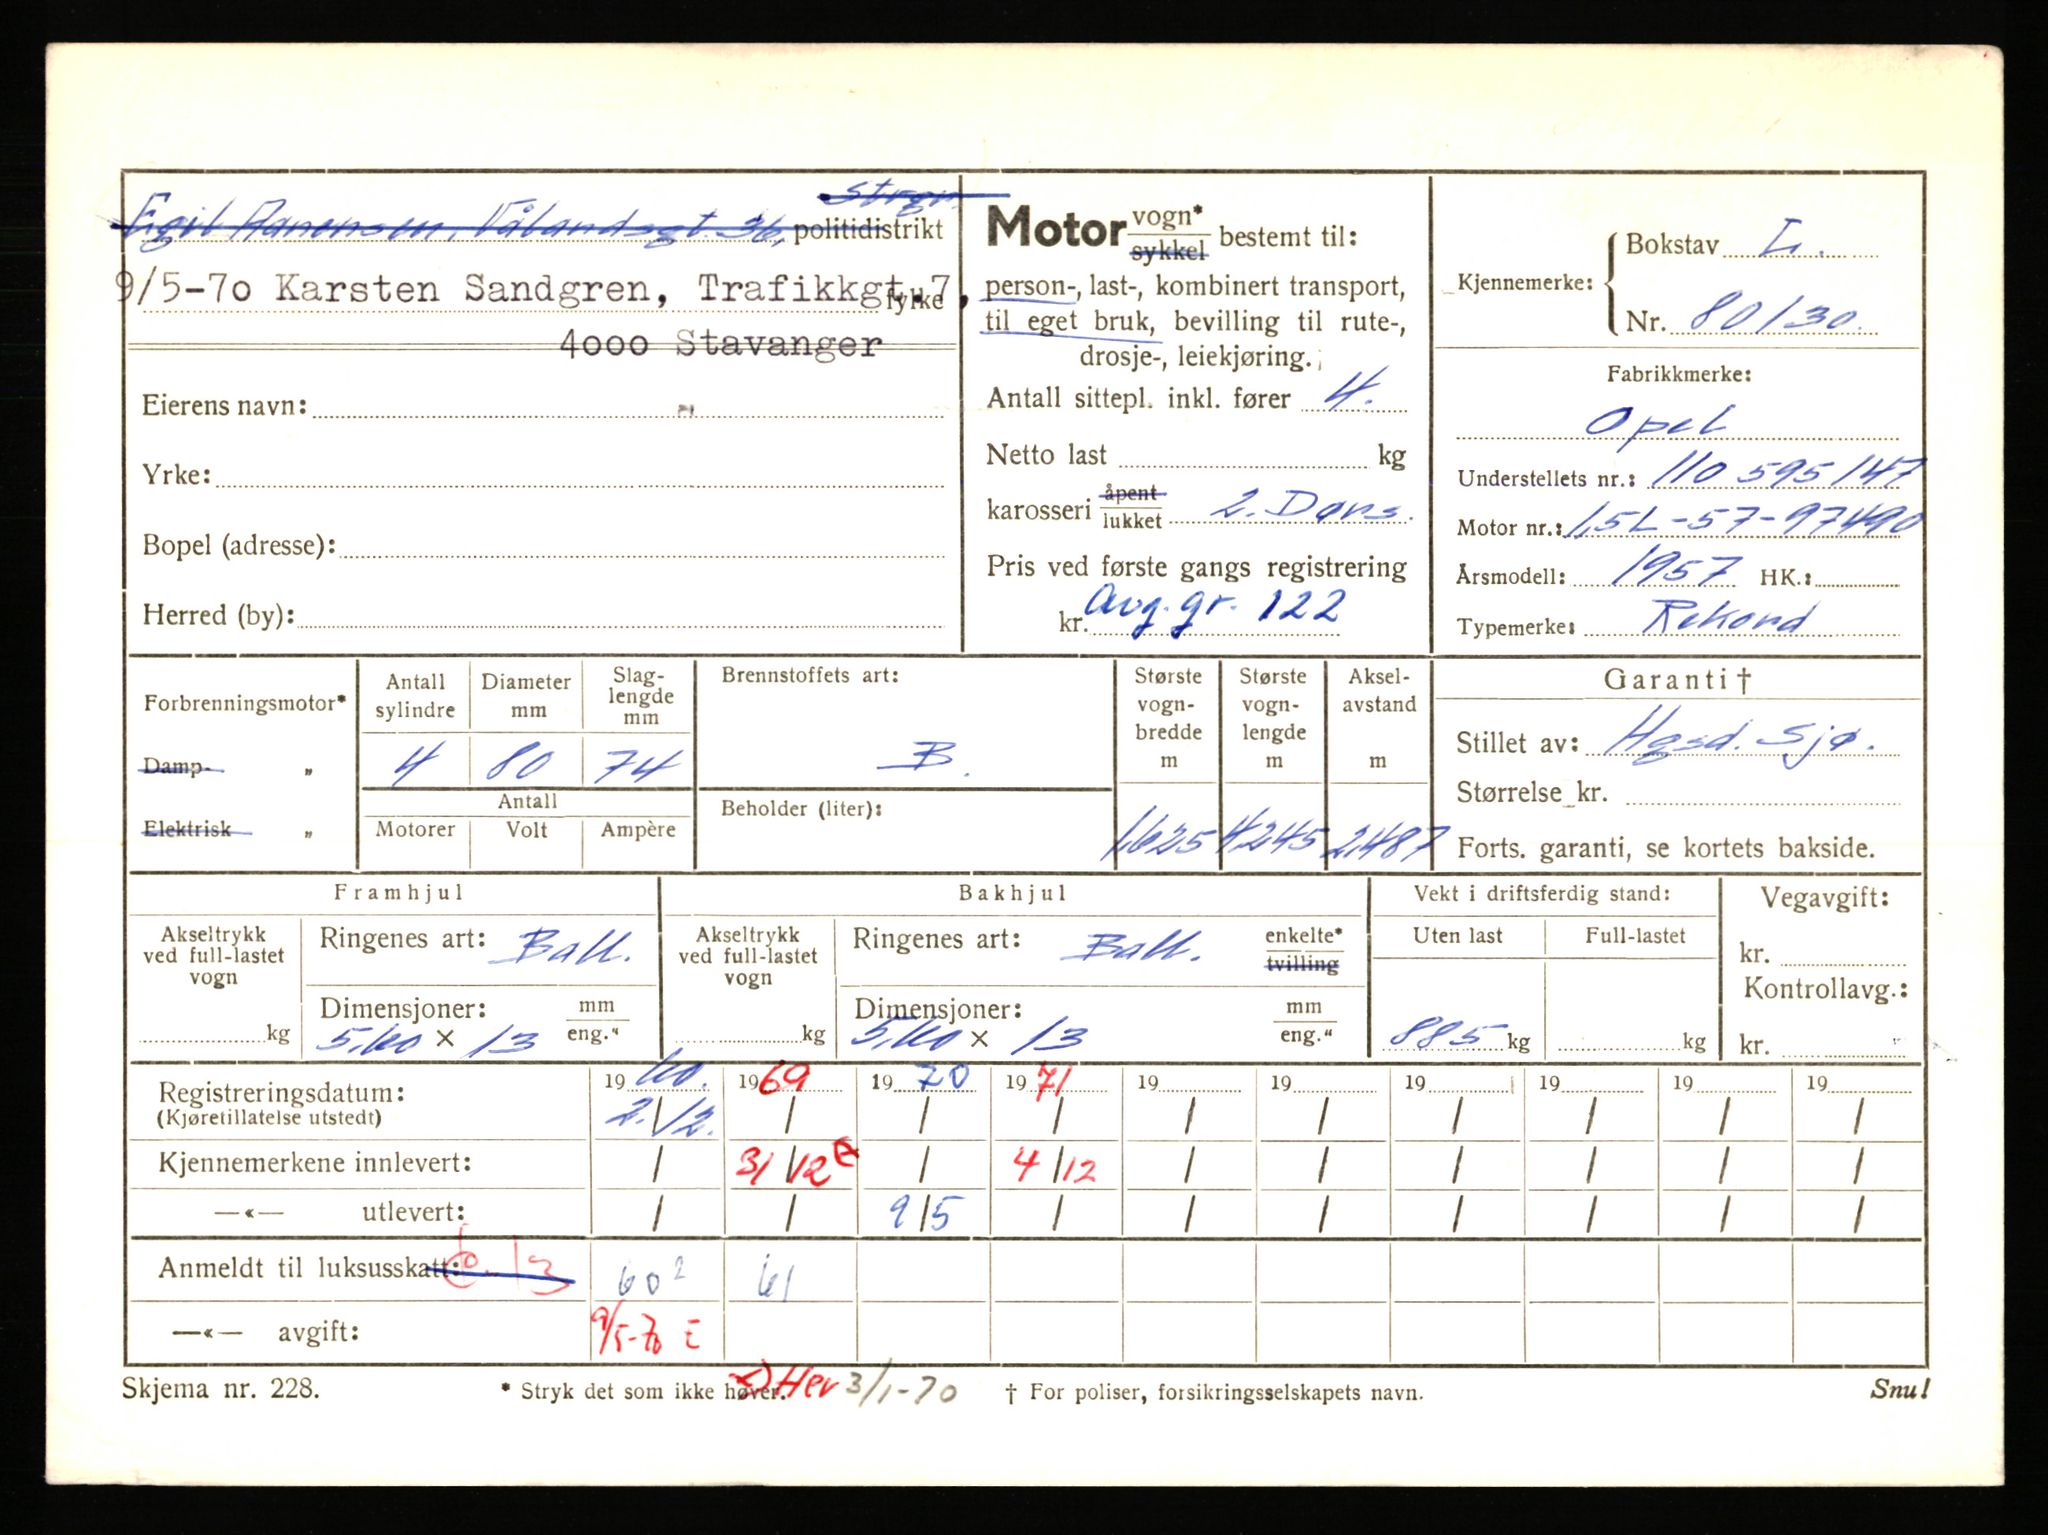 Strgr.
Egil Aanensen, Vålandsgt. 36, politidistrikt
9/5-70 Karsten Sandgren, Trafikkgt. 7, fylke
4000 Stavanger
Eierens navn:
Yrke:
Bopel (adresse):
Herred (by):
Motor vogn* sykkel bestemt til:
person-, last-, kombinert transport,
til eget bruk, bevilling til rute-,
drosje-, leiekjøring.
Antall sittepl. inkl. fører 4.
Netto last kg
karosseri åpent lukket 2. Dørs.
Pris ved første gangs registrering
kr. Avg. gr. 122
Kjennemerke: Bokstav L.
Nr. 80130.
Fabrikkmerke:
Opel
Understellets nr.: 110 595147
Motor nr.: 1,5L-57-97490
Årsmodell: 1957 HK.:
Typemerke: Rekord
Forbrenningsmotor*
Damp- „
Elektrisk „
Antall sylindre
Diameter mm
Slag-lengde mm
4 80 74
Antall
Motorer Volt Ampère
Brennstoffets art:
B.
Beholder (liter):
Største vogn-bredde m
Største vogn-lengde m
Aksel-avstand m
1,625 4,245 2,487
Garanti †
Stillet av: Hgsd. Sjø.
Størrelse kr.
Forts. garanti, se kortets bakside.
Framhjul
Akseltrykk ved full-lastet vogn
kg
Ringenes art: Ball.
Dimensjoner: mm eng."
5,60 × 13
Bakhjul
Akseltrykk ved full-lastet vogn
kg
Ringenes art: Ball. enkelte* tvilling
Dimensjoner: mm eng."
5,60 × 13
Vekt i driftsferdig stand:
Uten last Full-lastet
885 kg kg
Vegavgift:
kr.
Kontrollavg.:
kr.
Registreringsdatum: 1960. 1969 1970 1971 19 19 19 19 19 19
(Kjøretillatelse utstedt) 2./12. / / / / / / / / /
Kjennemerkene innlevert: / 31/12 / 4/12 / / / / / /
—«— utlevert: / / 9/5 / / / / / / /
Anmeldt til luksusskatt: 13 60² 61
—«— avgift: 9/5-70 E
Skjema nr. 228. * Stryk det som ikke høver. Hev 3/1-70 † For poliser, forsikringsselskapets navn. Snu!